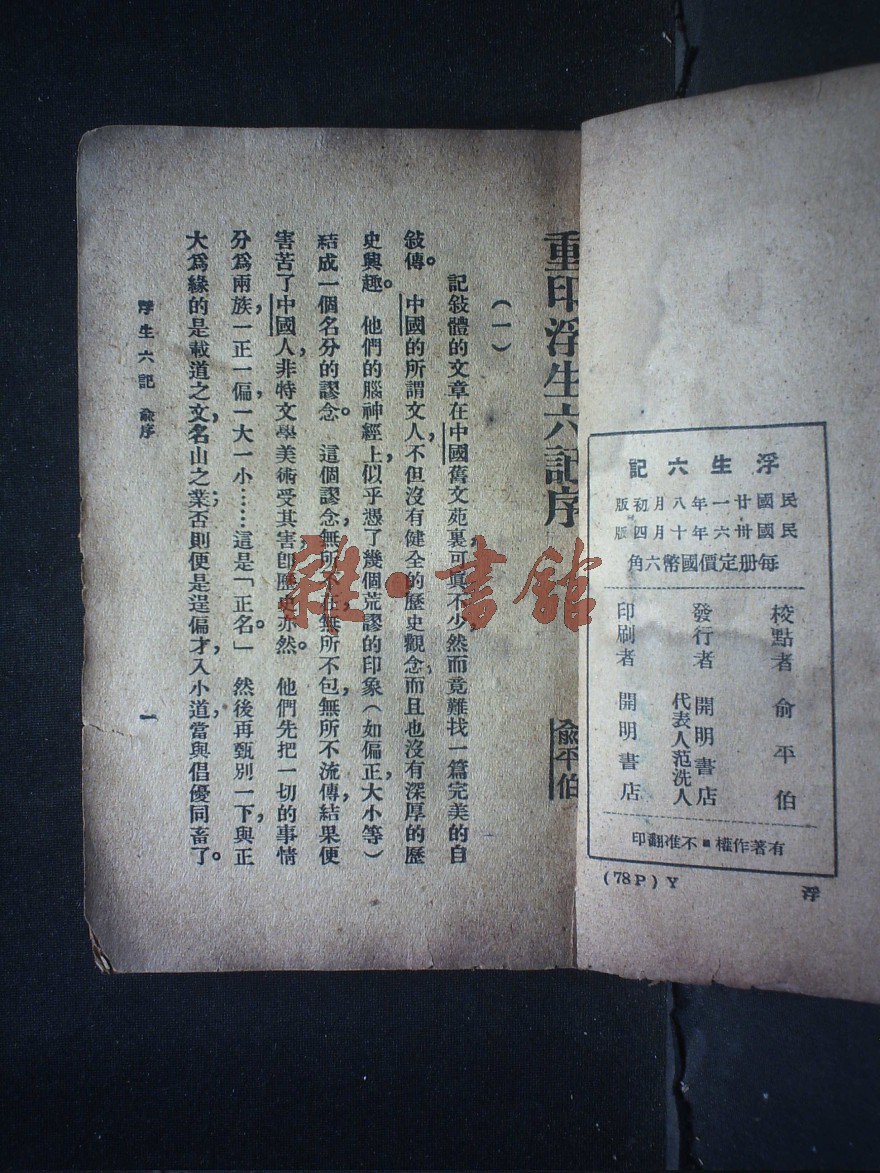 浮生六記
民國廿一年八月初版
民國卅六年十月四版
每册定價國幣六角
校點者 俞平伯
發行者 開明書店
代表人范洗人
印刷者 開明書店
有著作權■不准翻印
(78P) Y
浮
重印浮生六記序
俞平伯
(一)
記敍體的文章在中國舊文苑裏可眞不少，然而竟難找一篇完美的自
敍傳。中國的所謂文人，不但沒有健全的歷史觀念，而且也沒有深厚的歷
史興趣。他們的腦神經上，似乎憑了幾個荒謬的印象(如偏正，大小等)
結成一個名分的謬念。這個謬念無所不在，無所不包，無所不流傳，結果便
害苦了中國人，非特文學美術受其害，卽歷史亦然。他們先把一切的事情
分爲兩族，一正一偏，一大一小……這是「正名。」然後再甄別一下，與正
大爲緣的是載道之文，名山之業；否則便是逞偏才，入小道，當與倡優同畜了。
浮生六記 俞序
一
雜·書館